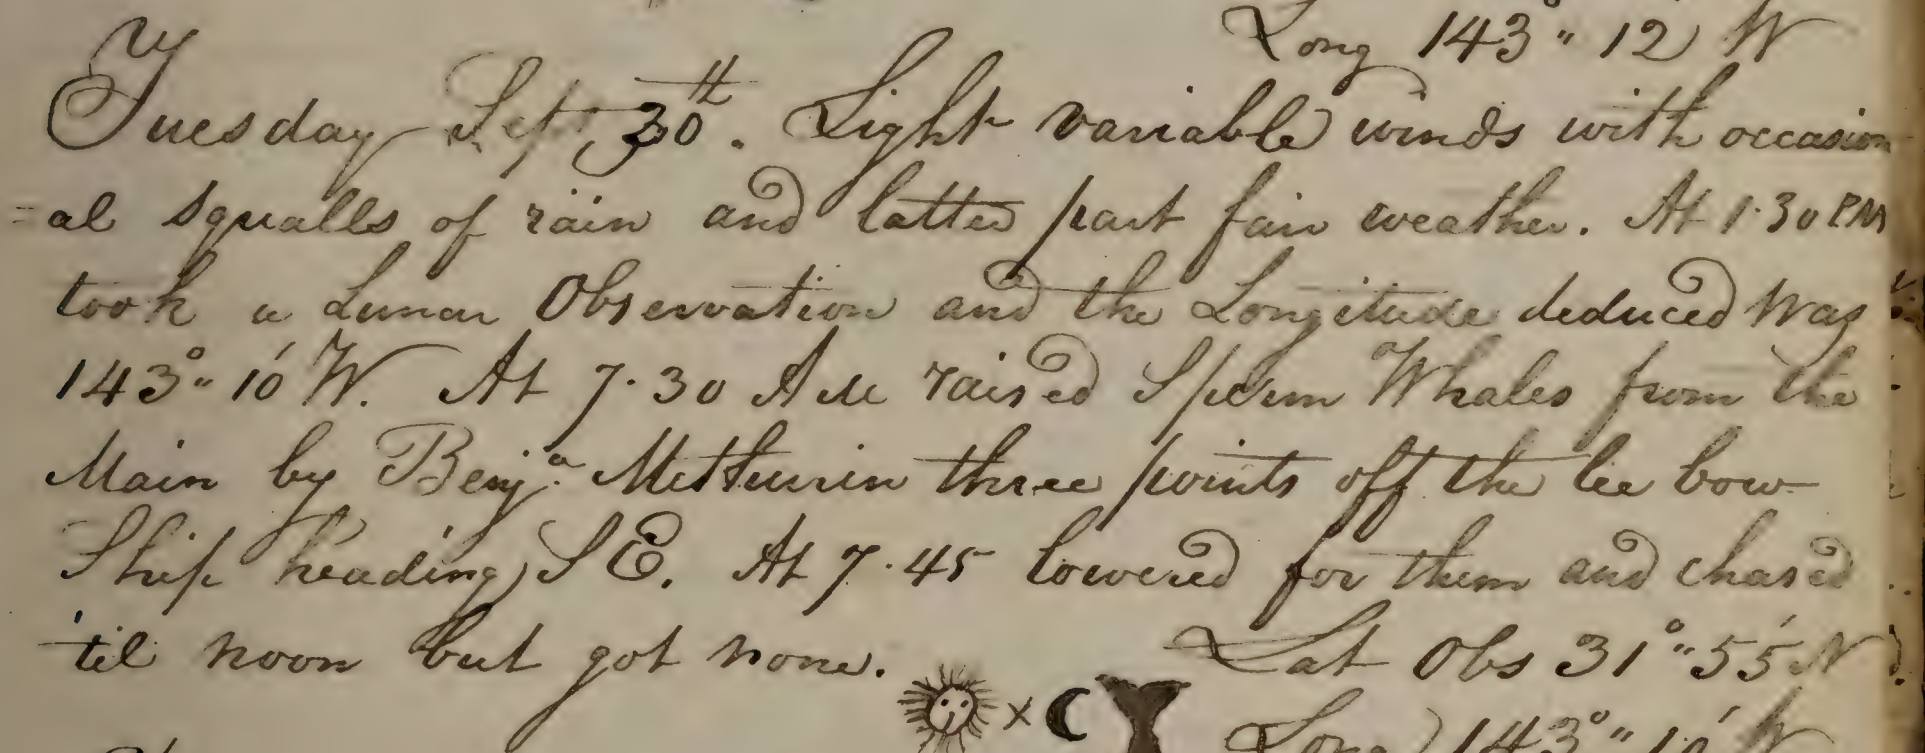 Long 143° " 12 W
Tuesday Sept 30th. Light variable winds with occasion
=al squalls of rain and latter part fair weather. At 1.30 PM
took a Lunar Observation and the Longitude deduced was
143° " 10' W. At 7.30 AM raised Sperm Whales from the
Main by Benja. three points off the lee bow
Ship heading S E. At 7.45 lowered for them and chased
'til noon but got none. Lat Obs 31° " 55' N
Long 143° " 10' W